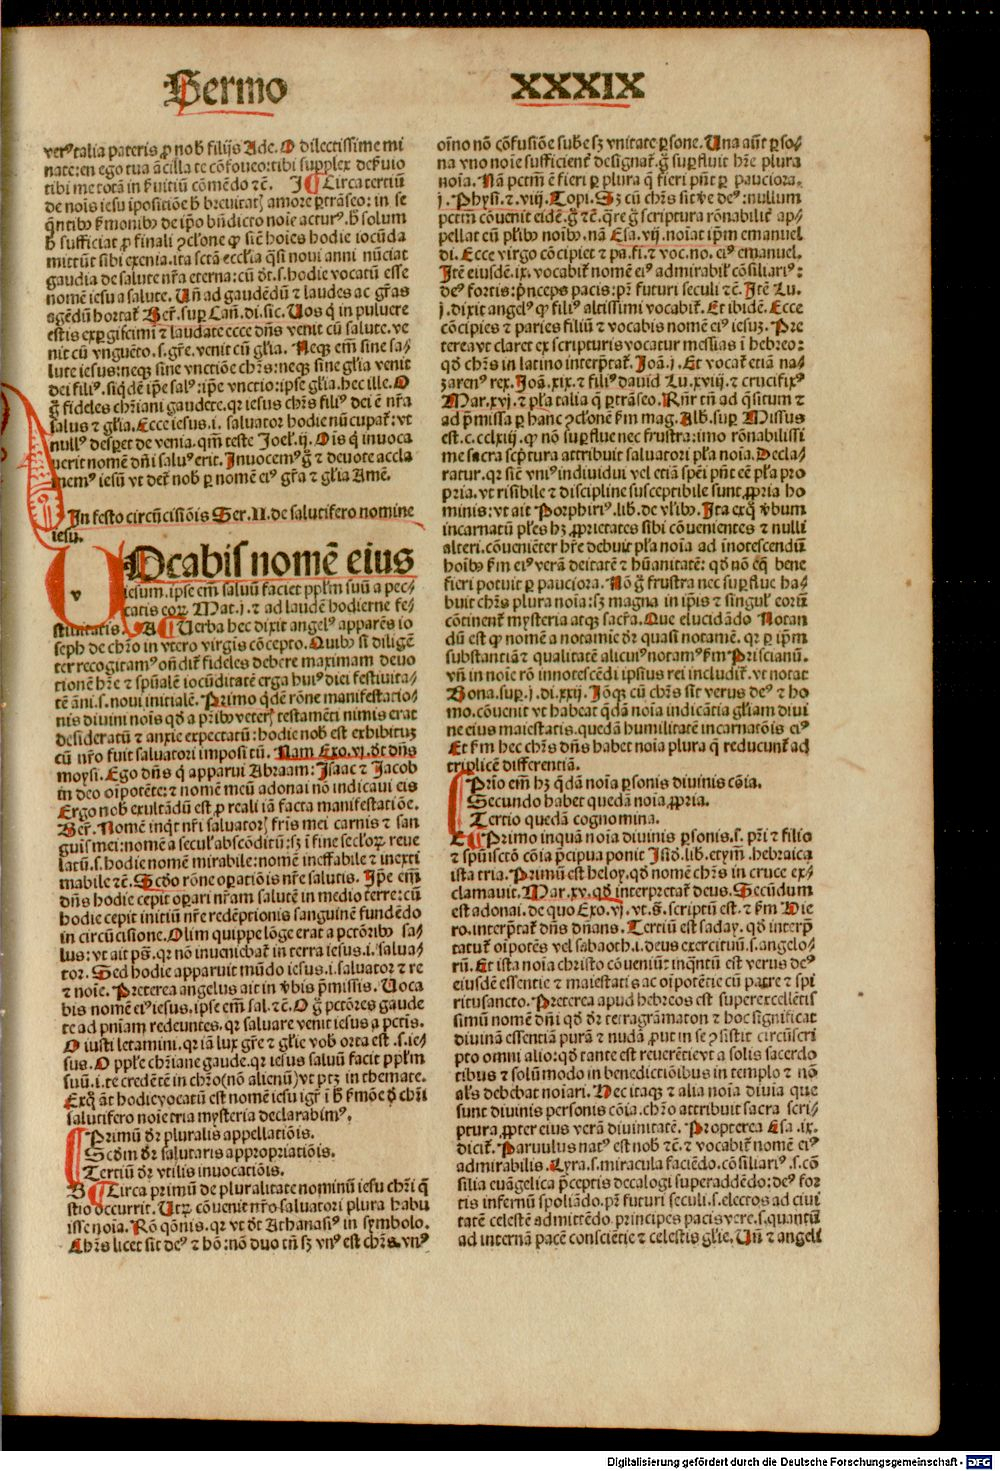 Sermo XXXIX
verꝰ talia pateris ꝓ nob̄ filijs Ade. O dilectissime mi
nate: en ego tua ācilla te cōfoueo: tibi supplex deẜuio
tibi me totā in ẜuitiū cōmēdo ⁊c. I Circa tertiū
de noīs iesu īpositiōe ħ breuitatꝭ amore ꝑtrāseo: in se
q̄ntibꝰ ẜmonibꝰ de ip̄o bn̄dicto noīe acturꝰ. ħ solum
ħ sufficiat ꝓ finali ꝯclōne ꝙ sic̄ hoīes hodie iocūda
mittūt sibi exenia. ita sctā eccl̄ia q̄si noui anni nūciat
gaudia de salute nr̄a eterna: cū dr̄t. s. hodie vocatū esse
nomē iesu a salute. Vn̄ ad gaudēdū ⁊ laudes ac gr̄as
agēdū hortat᷑ Ber̄. suꝑ Can̄. di. sic. Uos q̄ in puluere
estis exꝑgiscimī ⁊ laudate ecce dn̄s venit cū salute. ve
nit cū vnguēto. s. gr̄e. venit cū gl̄ia. Neqꝫ em̄ sine sa⸗
lute iesus: neqꝫ sine vnctiōe chr̄s: neqꝫ sine glia venit
dei filiꝰ. siqdē ip̄e salꝰ: ip̄e vnctio: ipse gl̄ia. hec ille. O
g̊ fideles chr̄iani gaudete. qr iesus chr̄s filiꝰ dei ē nr̄a
salus ⁊ gl̄ia. Ecce iesus. i. saluator hodie nūcupat᷑: vt
nullꝰ desꝑet de venia. qm̄ teste Joel. ij. Oīs q̄ inuoca
uerit nomē dn̄i saluꝰ erit. Inuocemꝰ g̊ ⁊ deuote accla
memꝰ iesū vt det᷑ nob̄ ꝑ nomē eiꝰ gr̄a ⁊ gl̄ia Amē.
In festo circūcisiōis Ser. II. de salutifero nomine
iesu.
VOcabis nomē eius
iesum. ipse em̄ saluū faciet pp̄lm suū a pec⸗
catis eoꝝ Mat. j. ⁊ ad laudē hodierne fe⸗
stiuitatis. A Uerba hec dixit angelꝰ apparēs io
seph de chr̄o in vtero virgis cōcepto. Quibꝰ si diligē
ter recogitamꝰ on̄dit᷑ fideles debere maximam deuo
tionē hr̄e ⁊ spūalē iocūditatē erga huiꝰ diei festiuita⸗
tē āni. s. noui initialē. Primo qdē rōne manifestatio⸗
nis diuini noīs qd̄ a prībꝰ veterꝭ testamēti nimis erat
desideratū ⁊ anxie expectatū: hodie nob̄ est exhibitū
cū nr̄o fuit saluatori imposi tū. Nam Exo. vj. dr̄t dn̄s
moysi. Ego dn̄s q̄ apparui Abraam: Isaac ⁊ Jacob
in deo oīpotēte: ⁊ nomē meū adonai nō indicaui eis
Ergo nob̄ exultādū est ꝓ reali iā facta manifestatiōe.
Ber̄. Nomē inqt nr̄i saluatorꝭ fr̄is mei carnis ⁊ san
guis mei: nomē a seculꝭ abscōditū: sꝫ ī fine secloꝝ reue
latū. s. hodie nomē mirabile: nomē ineffabile ⁊ inexti
mabile ⁊c. Scd̄o rōne oꝑatiōis nr̄e salutis. Ip̄e em̄
dn̄s hodie cepit oꝑari nr̄am salutē in medio terre: cū
hodie cepit initiū nr̄e redēptionis sanguinē fundēdo
in circūcisione. Olim quippe lōge erat a pctōribꝰ sa⸗
lus: vt ait ps̄. qr nō inueniebat᷑ in terra iesus. i. salua⸗
tor. Sed hodie apparuit mūdo iesus. i. saluator ⁊ re
⁊ noīe. Preterea angelus ait in ꝟbis p̄missis. Uoca
bis nomē eiꝰ iesus. ipse em̄ sal. ⁊c. O g̊ pctōres gaude
te ad pn̄iam redeuntes. qr saluare venit iesus a pctīs.
O iusti letamini. qr iā lux gr̄e ⁊ gl̄ie vob̄ orta est. s. ie⸗
sus. O pp̄le chr̄iane gaude. qr iesus saluū facit pp̄lm
suū. i. te credētē in chr̄o (nō alienū) vt ptꝫ in themate.
Exq̊ āt hodie vocatū est nomē iesu igr̄ ī ħ ẜmōe ḋ chr̄i
salutifero noīe tria mysteria declarabimꝰ.
Primū dr̄ pluralis appellatiōis.
Scd̄m dr̄ salutaris appropriatiōis.
Tertiū dr̄ vtilis inuocatiōis.
B Circa primū de pluralitate nominū iesu chr̄i q̄
stio occurrit. Utꝝ cōuenit nr̄o saluatori plura habu
isse noīa. Rō qōnis. qr vt dr̄t Athanasiꝰ in symbolo.
Chr̄s licet sit deꝰ ⁊ hō: nō duo tn̄ sꝫ vnꝰ est chr̄s. vnꝰ
oīno nō cōfusiōe sub̄e sꝫ vnitate ꝑsone. Una aūt ꝑso⸗
na vno noīe sufficient᷑ designat᷑. g̊ suꝑfluit hr̄e plura
noīa. Nā pctm̄ ē fieri ꝑ plura q̄ fieri pn̄t ꝑ pauciora.
j. Physi. ⁊. viij. Topi. Sꝫ cū chr̄s sit ꝟe deꝰ: nullum
pctm̄ cōuenit eidē. g̊ ⁊c. q̄re g̊ scriptura rōnabilit᷑ ap⸗
pellat eū pl̄ibꝰ noībꝰ. nā Esa. vij. noīat ip̄m emanuel
di. Ecce virgo cōcipiet ⁊ pa. fi. ⁊ voc. no. eiꝰ emanuel.
Itē eiusdē. ix. vocabit᷑ nomē eiꝰ admirabilꝭ cōsiliariꝰ:
deꝰ fortis: p̄nceps pacis: pr̄ futuri seculi ⁊c. Itē Lu.
j. dixit angelꝰ ꝙ filiꝰ altissimi vocabit᷑. Et ibidē. Ecce
cōcipies ⁊ paries filiū ⁊ vocabis nomē eiꝰ iesuꝫ. Pre
terea vt claret ex scripturis vocatur messias ī hebreo:
qd̄ chr̄s in latino interp̄tat᷑. Joā. j. Et vocat᷑ etiā na⸗
zarenꝰ rex. Joā. xix. ⁊ filiꝰ dauid Lu. xviij. ⁊ crucifixꝰ
Mar. xvj. ⁊ pl̄a talia q̄ ꝑtrāseo. Rn̄r tn̄ ad q̄situm ⁊
ad p̄missa ꝑ hanc ꝯclōnē ẜm mag. Alb̄. suꝑ Missus
est. c. cclxiij. ꝙ nō suꝑflue nec frustra: imo rōnabilissi
me sacra scp̄tura attribuit saluatori pl̄a noīa. Decla⸗
ratur. qr sic̄ vniꝰ indiuidui vel etiā spēi pn̄t eē pl̄a pro
pria. vt risibile ⁊ discipline susceptibile sunt ꝓpria ho
minis: vt ait Porphiriꝰ. lib. de vl̄ibꝰ. Ita exq̊ ꝟbum
incarnatū ples hꝫ ꝓprietates sibi cōuenientes ⁊ nulli
alteri. cōueniēter hr̄e debuit pl̄a noīa ad inotescendū
hoībꝰ ẜm eiꝰ verā deitatē ⁊ hūanitatē: qd̄ nō eq̄ bene
fieri potuit ꝑ pauciora. Nō g̊ frustra nec suꝑflue ha⸗
buit chr̄s plura noīa: sꝫ magna in ip̄is ⁊ singulꝭ eorū
cōtinent᷑ mysteria atqꝫ sacr̄a. Que elucidādo Notan
dū est ꝙ nomē a notamie dr̄ quasi notamē. qr ꝑ ip̄m
substantiā ⁊ qualitatē alicuiꝰ notamꝰ ẜm Priscianū.
vn̄ in noīe rō innotescēdi ipsius rei includit᷑. vt notat
Bona. suꝑ. j. di. xxij. Joqꝫ cū chr̄s sit verus deꝰ ⁊ ho
mo. cōuenit vt habeat q̄dā noīa indicātia gl̄iam diui
ne eius maiestatis. quedā humilitatē incarnatōis eiꝰ
Et ẜm hec chr̄s dn̄s habet noīa plura q̄ reducunt᷑ ad
triplicē differentiā.
Prīo em̄ hꝫ q̄dā noīa ꝑsonis diuinis cōia.
Secundo habet quedā noīa ꝓpria.
Tertio quedā cognomina.
C Primo inquā noīa diuinis ꝑsonis. s. pr̄i ⁊ filio
⁊ spūisctō cōia p̄cipua ponit Isid̄. lib. etym̄. hebraica
ista tria. Primū est heloy. qd̄ nomē chr̄s in cruce ex⸗
clamauit. Mar. xv. qd̄ interpretat᷑ deus. Secūdum
est adonai. de quo Exo. vj. vt. s̄. scriptū est. ⁊ ẜm Hie
ro. interp̄tat᷑ dn̄s dn̄ans. Tertiū est saday. qd̄ interp̄
tatut᷑ oīpotēs vel sabaoth. i. deus exercituū. s. angelo⸗
rū. Et ista noīa christo cōueniūt inq̄ntū est verus deꝰ
eiusdē essentie ⁊ maiestatis ac oīpotētie cū patre ⁊ spi
ritusancto. Preterea apud hebreos est superexcellētis
simū nomē dn̄i qd̄ dr̄ tetragrāmaton ⁊ hoc significat
diuinā essentiā purā ⁊ nudā ꝓut in se ꝯsistit circūscri
pto omni alio: qd̄ tante est reuerētie vt a solis sacerdo
tibus ⁊ solū modo in benedictiōibus in templo ⁊ nō
al̄s debebat noīari. Hec itaqꝫ ⁊ alia noīa diuīa que
sunt diuinis personis cōia. chr̄o attribuit sacra scri⸗
ptura ꝓpter eius verā diuinitatē. Propterea Esa. ix.
dicit᷑. Paruulus natꝰ est nob̄ ⁊c. ⁊ vocabit᷑ nomē eiꝰ
admirabilis. Lyra. s. miracula faciēdo. cōsiliariꝰ. s. cō
silia euāgelica p̄ceptis decalogi superaddēdo: deꝰ for
tis infernū spoliādo. pr̄ futuri seculi. s. electos ad ciui
tatē celestē admittēdo. princeps pacis vere. s. quantū
ad internā pacē consciētie ⁊ celestis gl̄ie. Un̄ ⁊ angeli
Digitalisierung gefördert durch die Deutsche Forschungsgemeinschaft - DFG